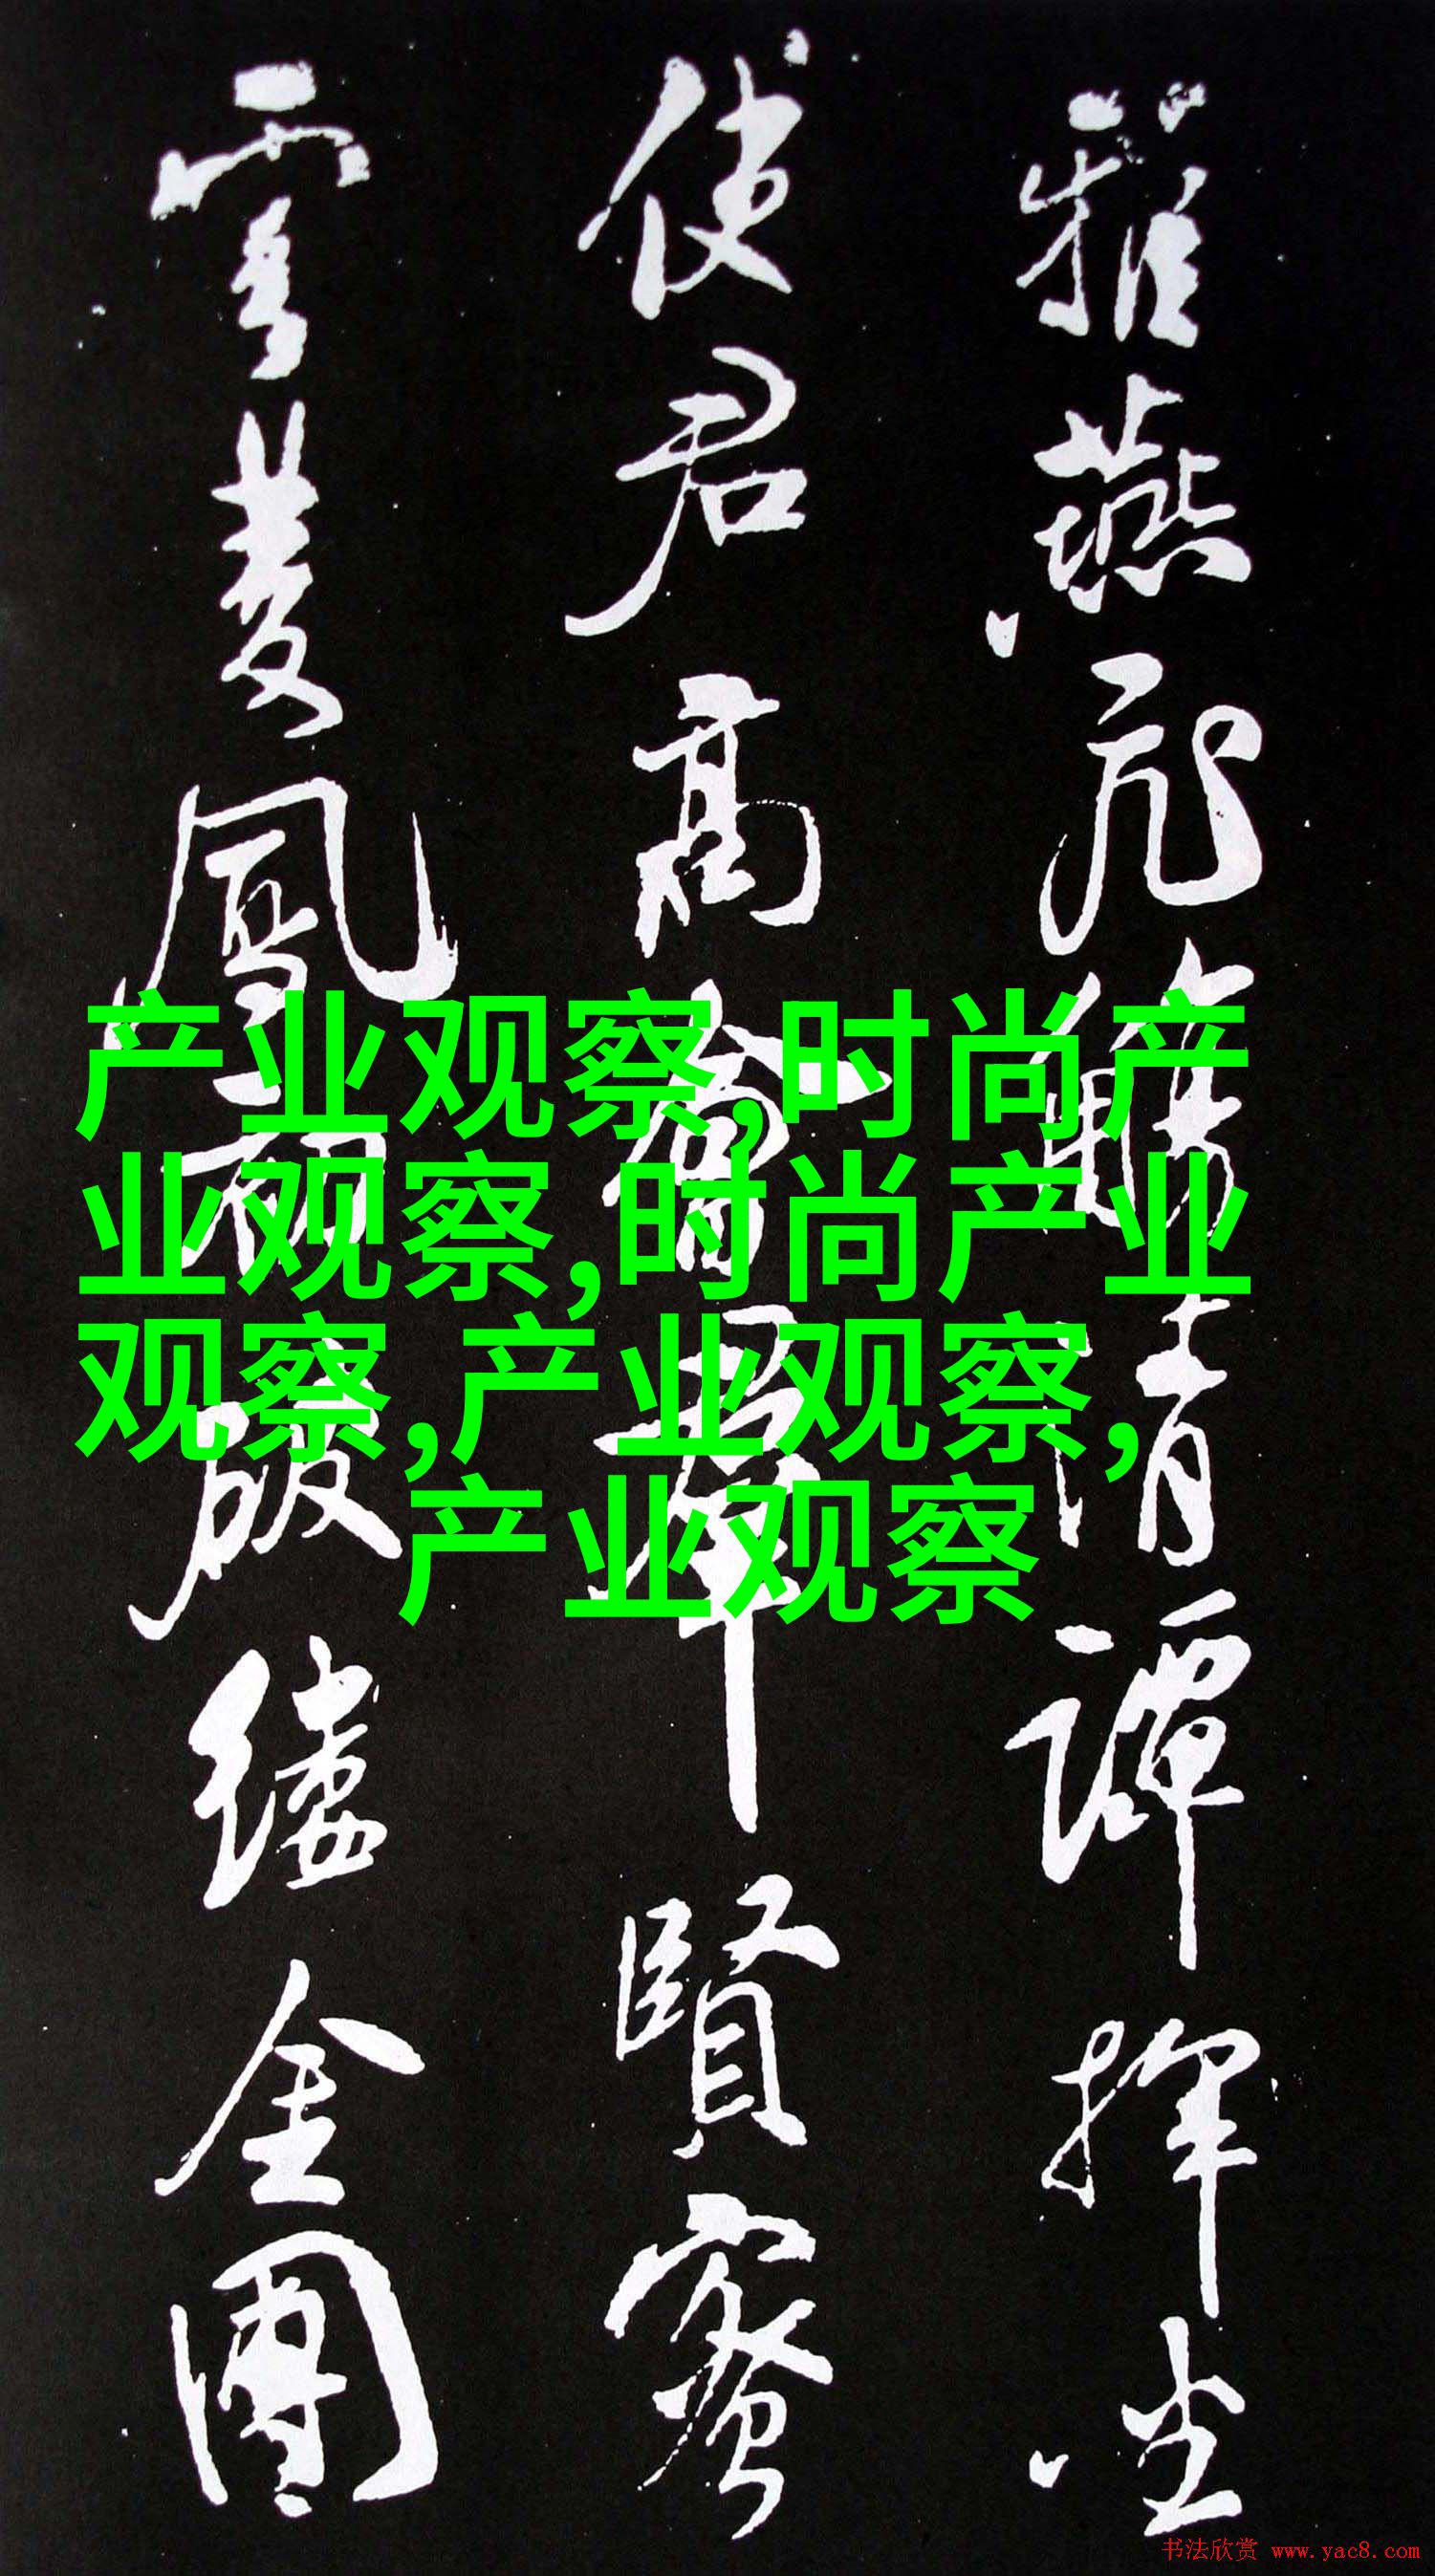 雅燕飛觴清譚揮坐
使君高會羣賢密
雲雙鳳初破縷金團
产业观察,时尚产
业观察,时尚产业
观察,产业观察,
产业观察
书法欣赏 www.yac8.com